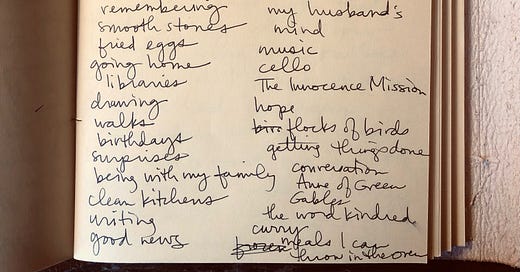 remembering
smooth stones
fried eggs
going home
libraries
drawing
walks
birthdays
surprises
being with my family
clean kitchens
writing
good news
my husband's
mind
music
cello
The Innocence Mission
hope
flocks of birds
getting things done
conversation
Anne of Green
Gables
the word kindred
curry
frozen meals I can
throw in the oven